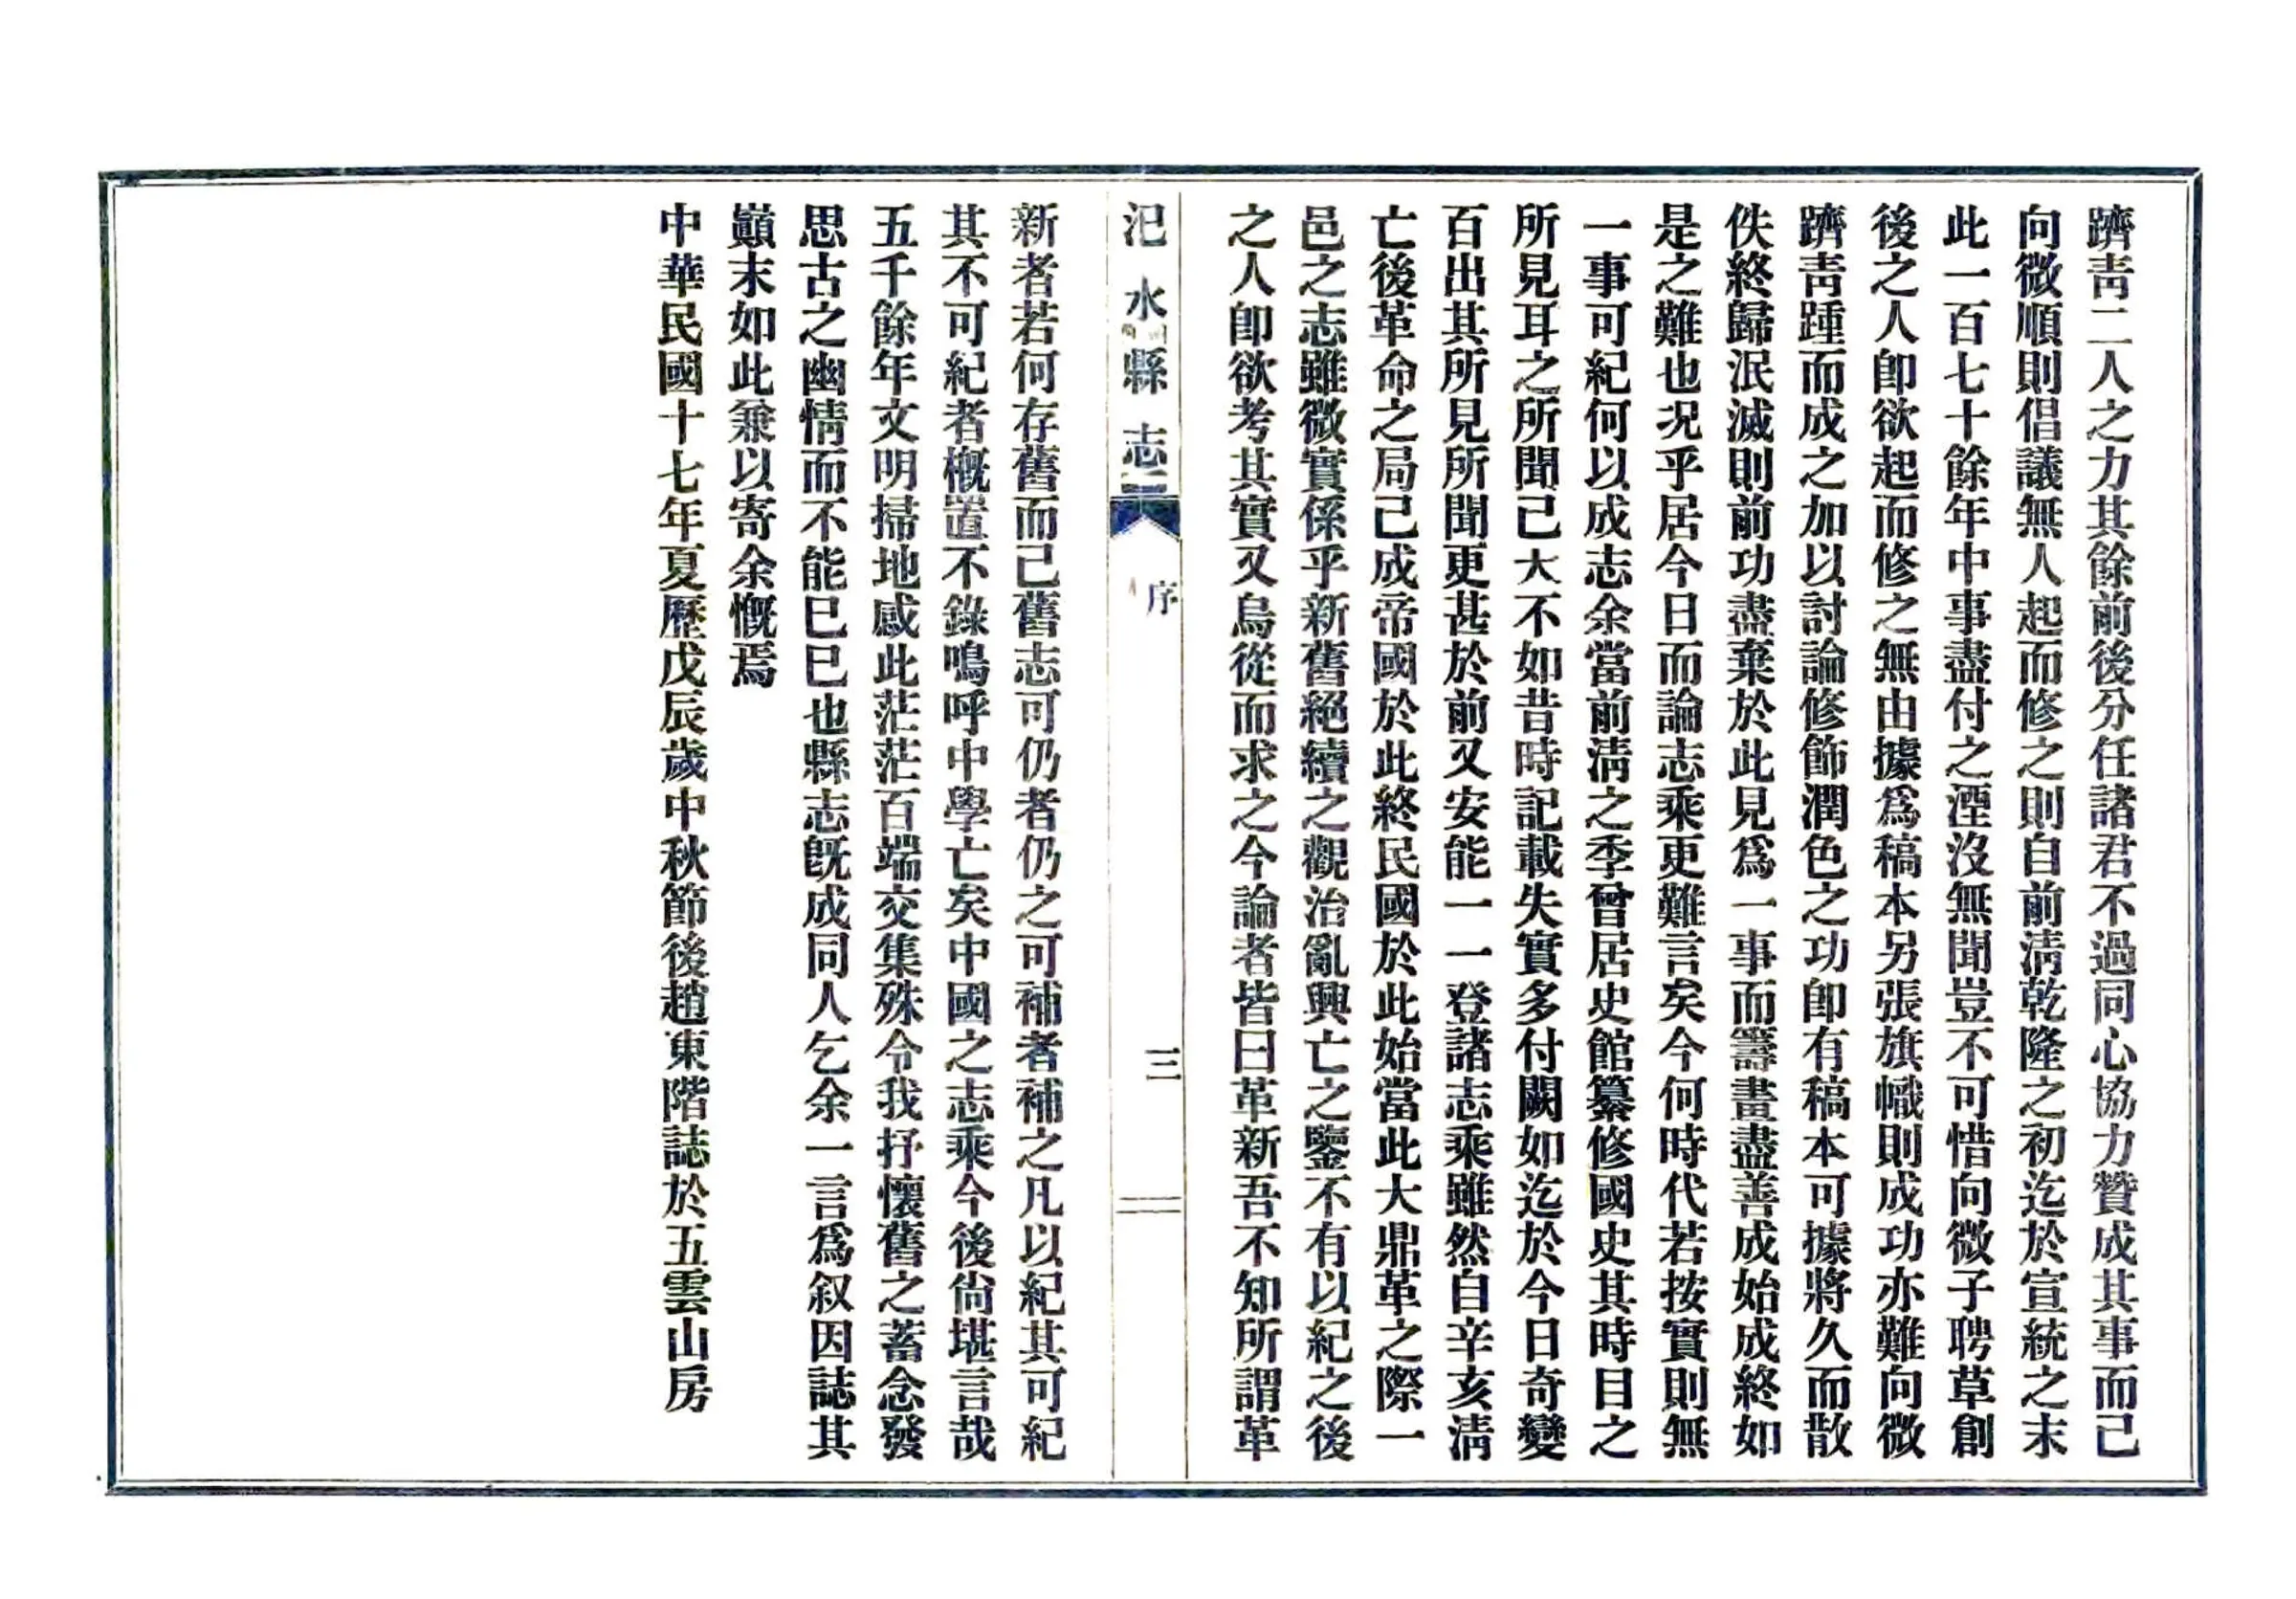 躋靑二人之力其餘前後分任諸君不過同心協力贊成其事而己
向微順則倡議無人起而修之則自前淸乾隆之初迄於宣統之末
此一百七十餘年中事盡付之湮沒無聞豈不可惜向微子聘草創
後之人卽欲起而修之無由據爲稿本另張旗幟則成功亦難向微
躋靑踵而成之加以討論修飾潤色之功卽有稿本可據將久而散
佚終歸泯滅則前功盡棄於此見爲一事而籌畫盡善成始成終如
是之難也况乎居今日而論志乘更難言矣今何時代若按實則無
一事可紀何以成志余當前淸之季曾居史館纂修國史其時目之
所見耳之所聞己大不如昔時記載失實多付闕如迄於今日奇變
百出其所見所聞更甚於前又安能一一登諸志乘雖然自辛亥淸
亡後革命之局己成帝國於此終民國於此始當此大鼎革之際一
邑之志雖微實係乎新舊絕續之觀治亂興亡之鑒不有以紀之後
之人卽欲考其實又烏從而求之今論者皆曰革新吾不知所謂革
汜水縣志
序
三
新者若何存舊而己舊志可仍者仍之可補者補之凡以紀其可紀
其不可紀者槪置不錄鳴呼中學亡矣中國之志乘今後尙堪言哉
五千餘年文明掃地感此茫茫百端交集殊令我抒懷舊之蓄念發
思古之幽情而不能巳巳也縣志旣成同人乞余一言爲叙因誌其
巔末如此兼以寄余慨焉
中華民國十七年夏歷戊辰歲中秋節後趙東階誌於五雲山房